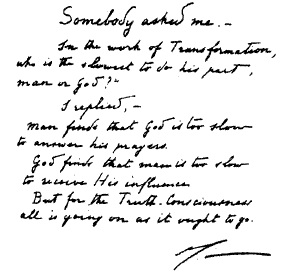 Somebody asked me. –
In the work of Transformation,
who is the slowest to do his part,
man or God?"
I replied, –
Man finds that God is too slow
to answer his prayers.
God finds that man is too slow
to receive His influence.
But for the Truth-Consciousness
all is going on as it ought to go.